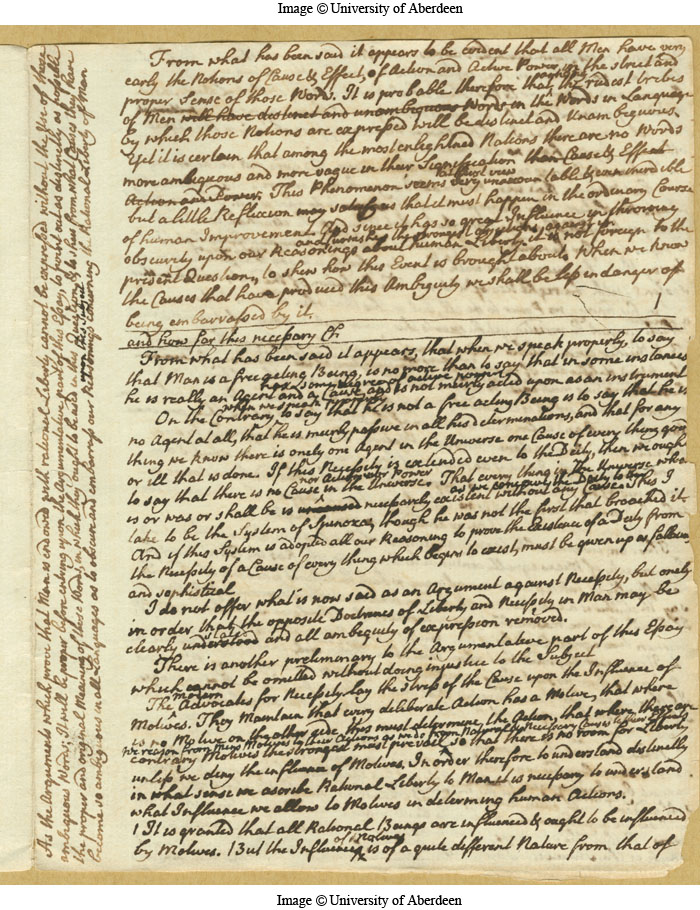 Image © University of Aberdeen
From what has been said it appears to be evident that all Men have very
early the Notions of Cause & Effect, of Action and Active Power in the strict and
proper Sense of those Words. It is probable therefore that the rudest tribes
of Men will have distinct and unambiguous Words in the Words in Language
by which those Notions are expressed will be distinct and Unambiguous
Yet it is certain that among the most enlightned Nations there are no Words
more ambiguous and more vague in their Signification than Cause & Effect
at first view
Action and Power. This Phenomenon seems very unaccountable & even incredible
but a little Reflexion may satisfy us that it must happen in the ordinary Course
of human Improvement. And since it has so great Influence in throwing
and furnishes the strongest objections against it
obscurity upon our Reasonings about human Liberty it is not foreign to the
present Question, to shew how this Event is brought about. When we know
the Causes that have produced this Ambiguity we shall be less in danger of
being embarrassed by it.
and how far this necessary &c
From what has been said it appears, that when we speak properly, to say
that Man is a free acting Being, is no more than to say that in some instances
has some degree of active power
he is really an Agent and a Cause, and is not meerly acted upon as an instrument
when we speak properly
On the Contrary to say that he is not a free acting Being is to say that he is
no Agent at all, that he is meerly passive in all his determinations, and that for any
thing we know there is onely one Agent in the Universe one Cause of every thing good
or ill that is done. If this Necessity is extended even to the Deity, then we ought
nor Active Power
to say that there is no Cause in the Universe. That every thing in the Universe who
as we conceive the Deity to be
is or was or shall be is necessarly existent without any Cause. This I
take to be the System of Spinoza, though he was not the first that broached it
And if this System is adopted all our Reasoning to prove the Existence of a Deity from
the Necessity of a Cause of every thing which begins to exist, must be given up as fallacious
and sophistical
I do not offer what is now said as an Argument against Necessity, but onely
in order that the opposite Doctrines of Liberty and Necessity in Man may be
stated
clearly understood and all ambiguity of expression removed.
There is another preliminary to the Argumentative part of this Essay
which cannot be omitted without doing injustice to the Subject
modern
The Advocates for Necessity lay the stress of the Cause upon the Influence of
Motives. They Maintain that every deliberate Action has a Motive, that where
is no Motive on the other side this must determine the Action, that where there are
we reason from Mens Motives to their Actions as we do from Natural & Necessary Causes to their Effects
contrary Motives the strongest must prevail, so that there is no room for Liberty,
unless we deny the influence of Motives. In order therefore to understand distinctly
in what sense we ascribe Rational Liberty to Man it is necessary to understand
what Influence we allow to Motives in determing human Actions.
1 It is granted that all Rational Beings are influenced & ought to be influenced
of Motives
by Motives. But the Influence is of a quite different Nature from that of
As the Arguments which prove that Man is endowed with rational Liberty cannot be expressed without the Use of those
ambiguous Words, It will be proper before entering upon the Argumentative part of this Essay, to point out as distinctly as possible
the proper and original Meaning of those Words, in which they ought to be used in this Question; & to shew from what Causes they have
become so ambiguous in all Languages as to obscure and embarrass our Reasonings concerning the Rational Liberty of Man
Image © University of Aberdeen